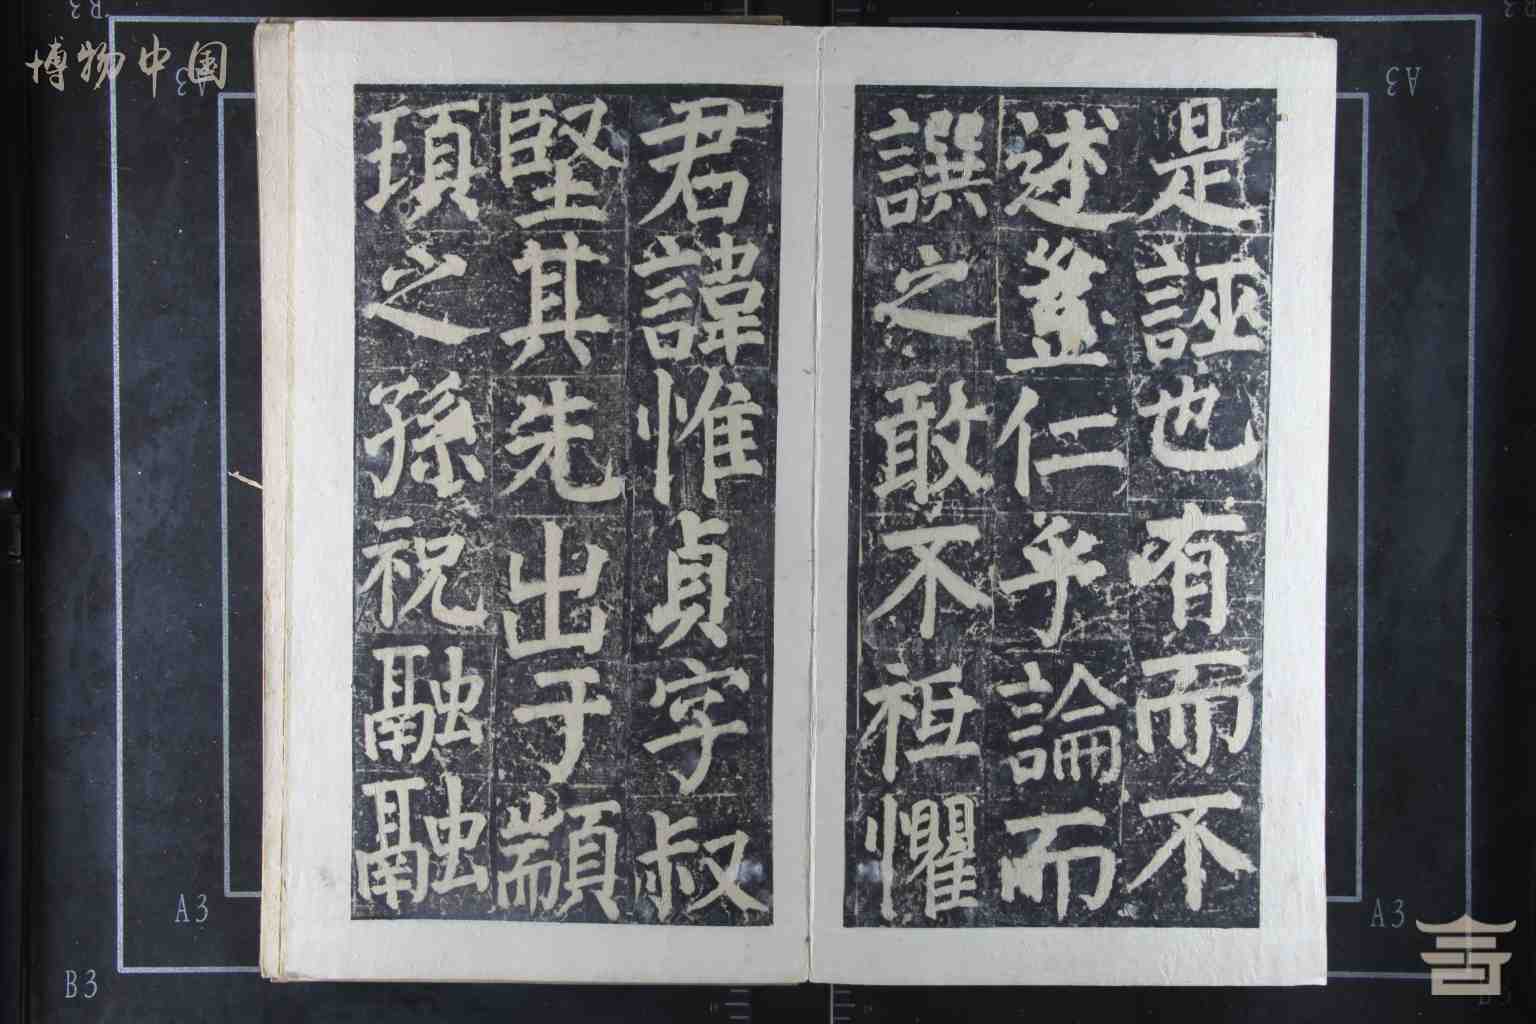 是誣也有而不
述豈仁乎論而
譔之敢不祗懼
君諱惟貞字叔
堅其先出于顓
頊之孫祝融融
博物中国
A3
A3
A3
A3
B3
B3